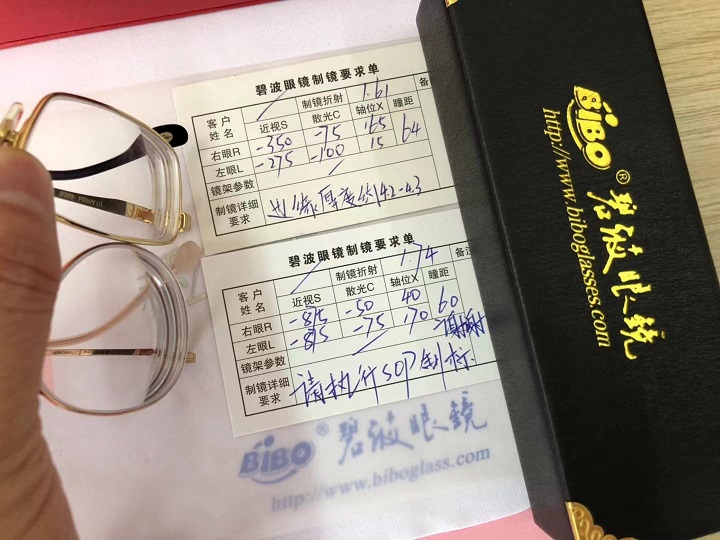 碧波眼镜制镜要求单
客户姓名 制镜折射 1.61 备
近视S 散光C 轴位X 瞳距
右眼R -350 -75 165 64
左眼L -275 -100 15
镜架参数
制镜详细要求 边缘厚度约4.2-4.3
碧波眼镜制镜要求单
客户姓名 制镜折射 1.74 备注
近视S 散光C 轴位X 瞳距
右眼R -815 -50 40 60
左眼L -815 -75 170
镜架参数
制镜详细要求 请执行SOP制标
BiBO® 碧波眼镜
http://www.biboglass.com
BiBO® 碧波眼镜
http://www.biboglasses.com
TITANIUM